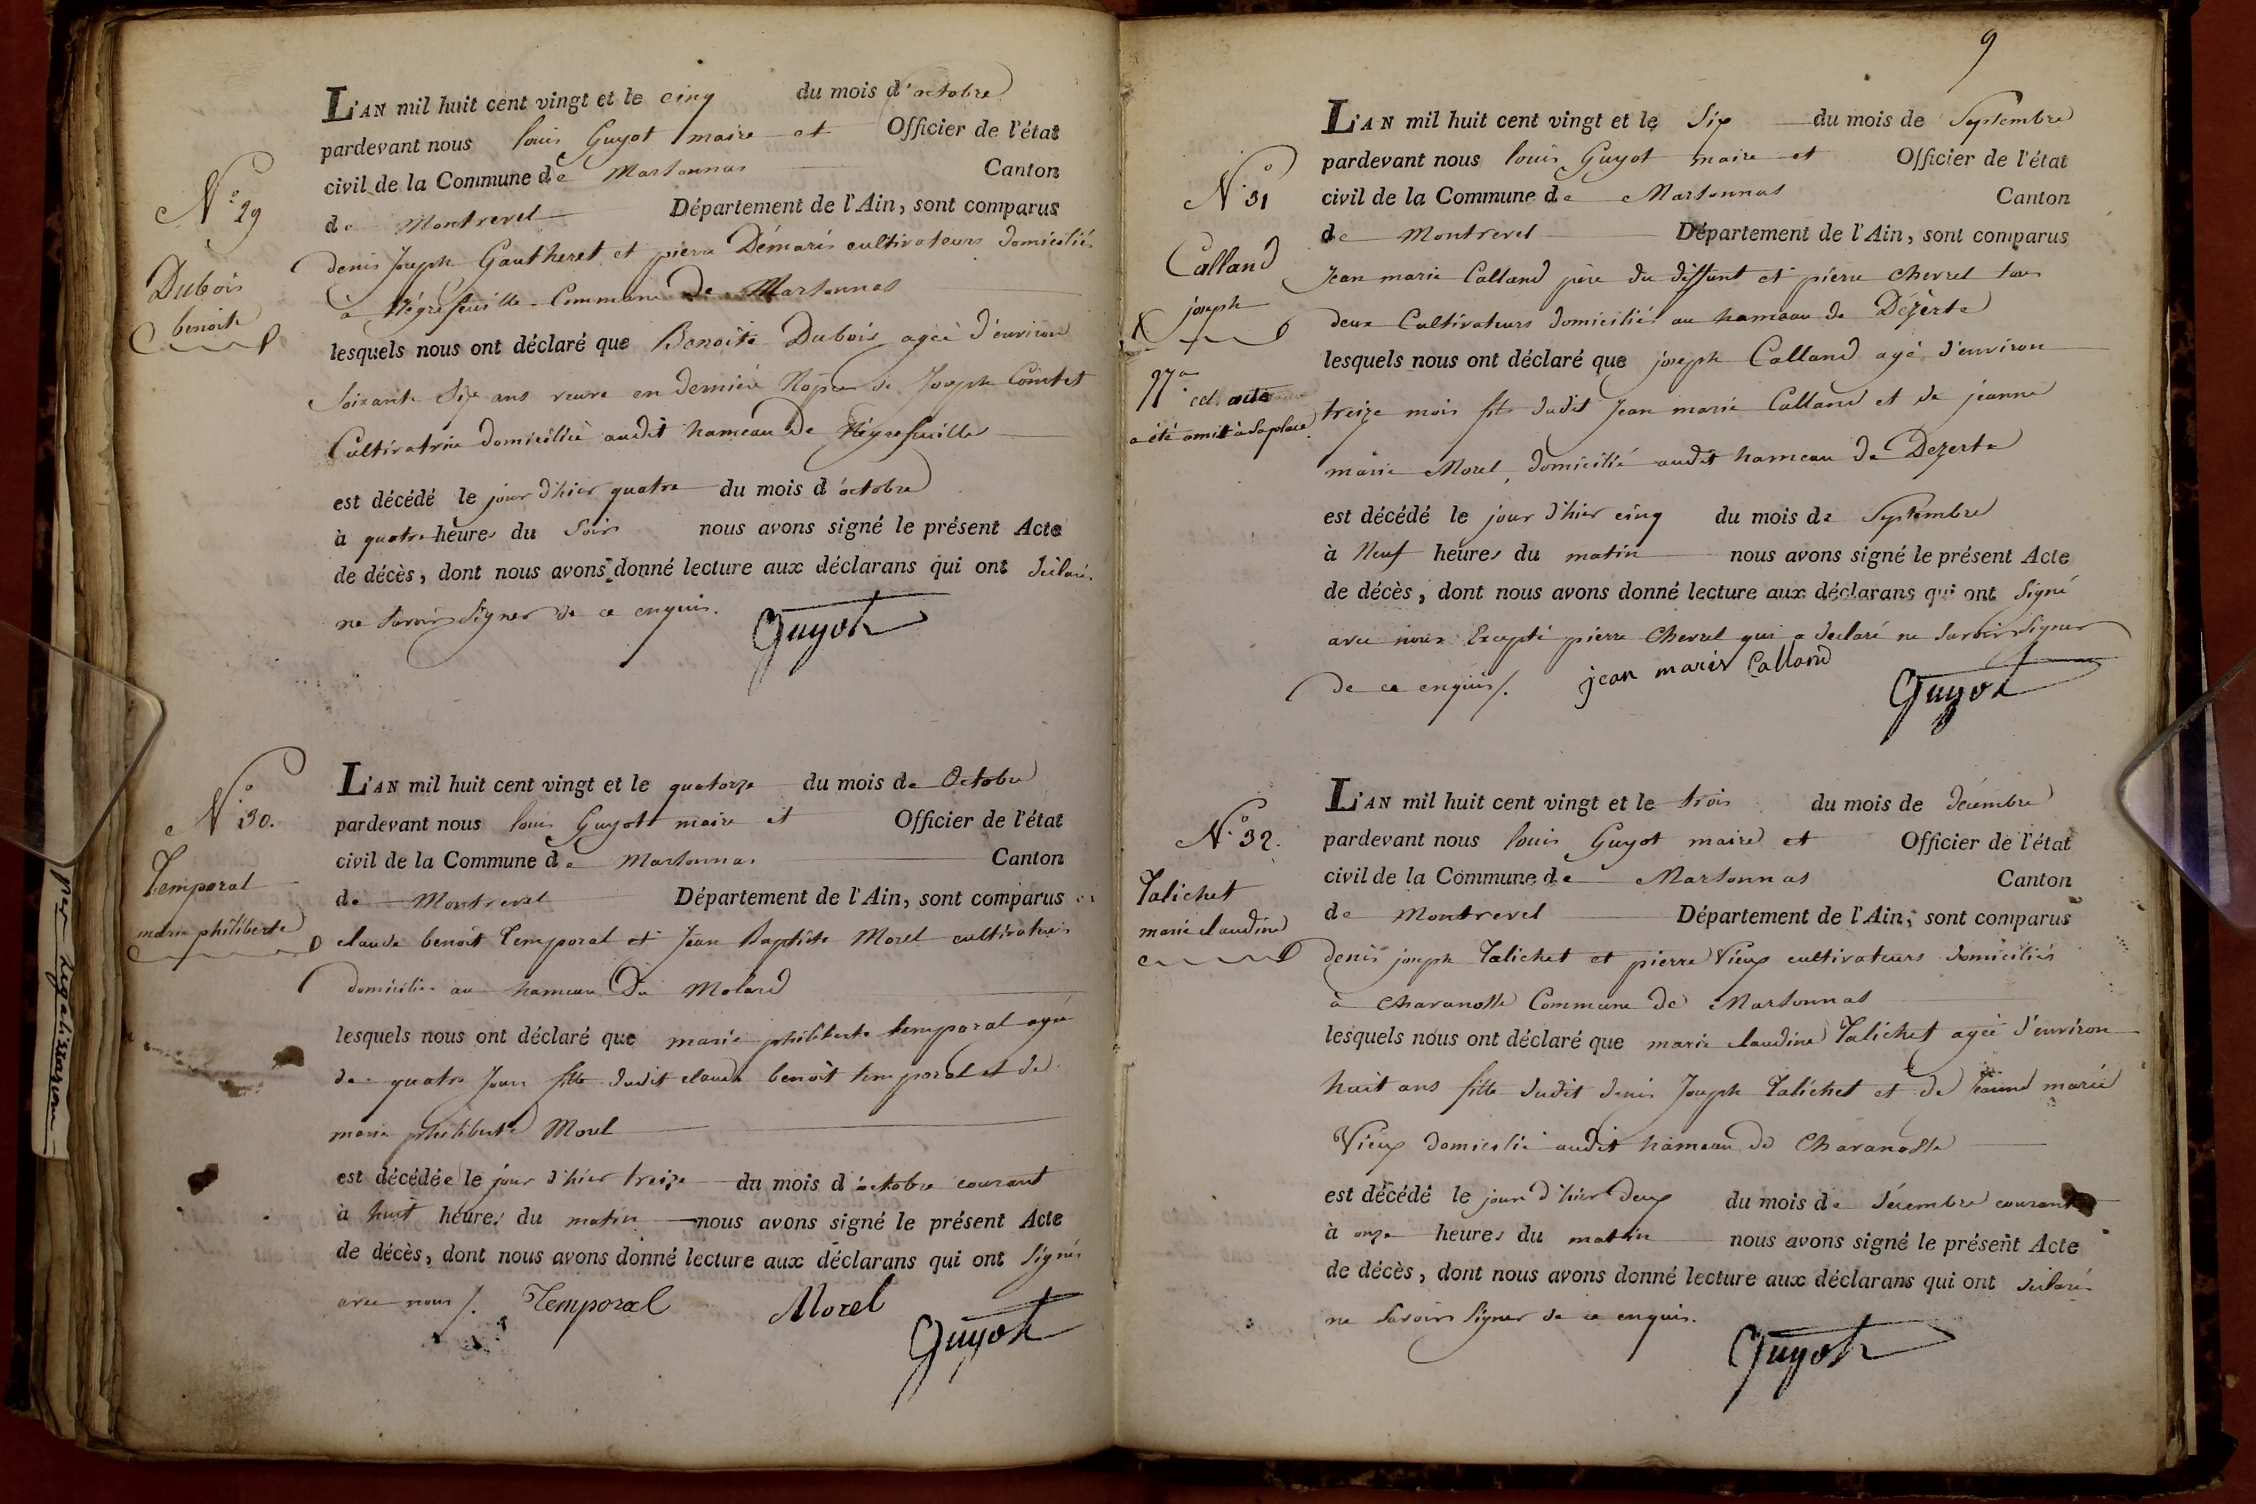 L'AN mil huit cent vingt et le cinq du mois d'octobre
pardevant nous louis Guyot maire et Officier de l'état
civil de la Commune de Marsonnas Canton
de Montrevel Département de l'Ain, sont comparus
denis Joseph Gautheret et pierre Démaris cultivateurs domiciliés
à Négrefeuille Commune De Marsonnas
lesquels nous ont déclaré que Benoite Dubois agée d'environ
Soixante Six ans veuve en dernière Nopces de Joseph Comtet
Cultivatrice domiciliée audit hameau De Négrefeuille
est décédé le jour d'hier quatre du mois d'octobre
à quatre heures du Soir nous avons signé le présent Acte
de décès, dont nous avons donné lecture aux déclarans qui ont déclaré
ne Savoir Signer de ce enquis.
Guyot
N.º 29
Dubois
benoite
L'AN mil huit cent vingt et le quatorze du mois de Octobre
pardevant nous louis Guyot maire et Officier de l'état
civil de la Commune de Marsonnas Canton
de Montrevel Département de l'Ain, sont comparus
claude benoit Temporal et Jean Baptiste Morel cultivateurs
domiciliés au hameau Du Molard
lesquels nous ont déclaré que marie philiberte temporal agée
de quatre Jours fille dudit claude benoit temporal et de
marie philiberte Morel
est décédée le jour d'hier treize du mois d'octobre courant
à huit heures du matin nous avons signé le présent Acte
de décès, dont nous avons donné lecture aux déclarans qui ont Signés
avec nous /. Temporal Morel
Guyot
N.º 30.
Temporal
marie philiberte
9
L'AN mil huit cent vingt et le Six du mois de Septembre
pardevant nous louis Guyot maire et Officier de l'état
civil de la Commune de Marsonnas Canton
de Montrevel Département de l'Ain, sont comparus
Jean marie Calland père du deffunt et pierre Chevrel tous
deux Cultivateurs domiciliés au hameau de Dézerte
lesquels nous ont déclaré que joseph Calland agé d'environ
treize mois fils dudit Jean marie Calland et de jeanne
marie Morel, domicilié audit hameau de Dezerte
est décédé le jour d'hier cinq du mois de Septembre
à Neuf heures du matin nous avons signé le présent Acte
de décès, dont nous avons donné lecture aux déclarans qui ont Signé
avec nous Excepté pierre Chevrel qui a declaré ne Savoir Signer
de ce enquis /. jean marie Calland
Guyot
N.º 31
Calland
joseph
cet acte
a été omit à Sa place
L'AN mil huit cent vingt et le trois du mois de décembre
pardevant nous louis Guyot maire et Officier de l'état
civil de la Commune de Marsonnas Canton
de Montrevel Département de l'Ain, sont comparus
denis joseph Talichet et pierre Vieux cultivateurs domiciliés
à Charanolle Commune de Marsonnas
lesquels nous ont déclaré que marie claudine Talichet agée d'environ
huit ans fille dudit denis Joseph Talichet et de Jeanne marie
Vieux domicilié audit hameau de Charanolle
est décédé le jour d'hier deux du mois de décembre courant
à onze heures du matin nous avons signé le présent Acte
de décès, dont nous avons donné lecture aux déclarans qui ont déclaré
ne Savoir Signer de ce enquis.
Guyot
N.º 32.
Talichet
marie claudine